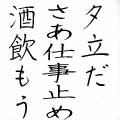 夕立だ
さあ仕事止め
酒飲もう